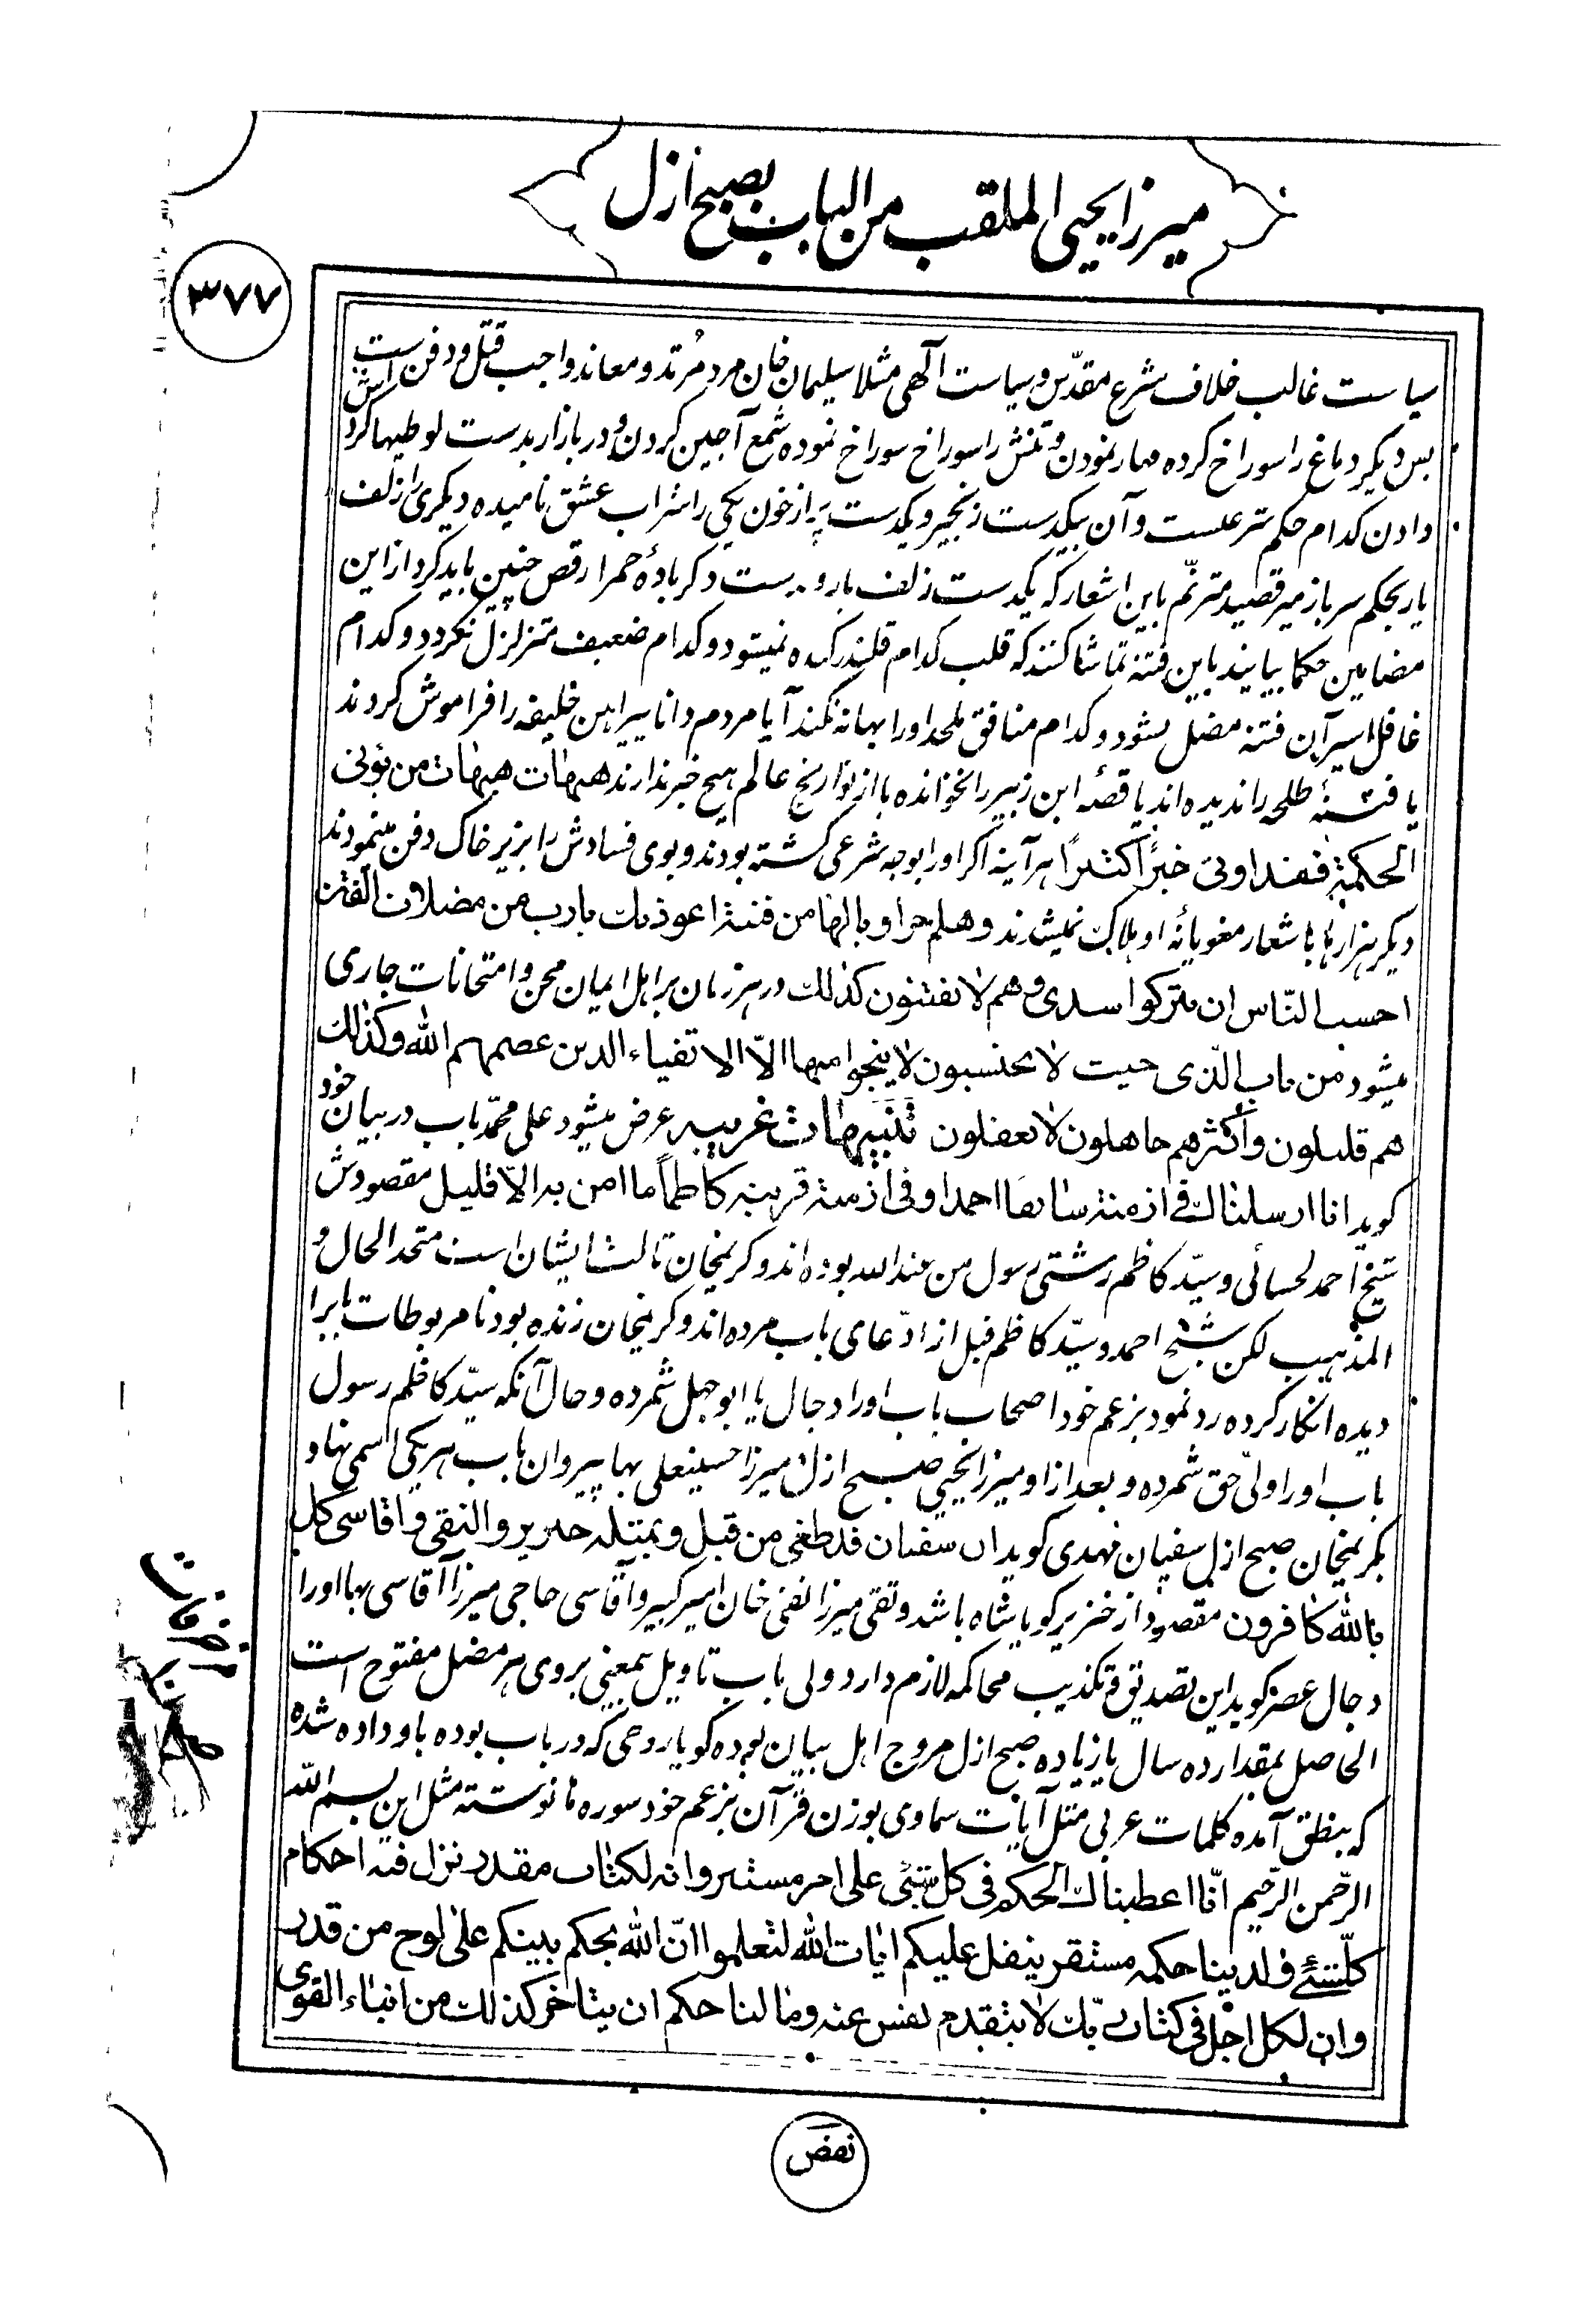 میرزا یحیی الملقب من الباب بصبح ازل
۳۷۷
سیاست غالب خلاف شرع مقدّس و سیاست آلهی مثلا سلیمان خان مرد مُرتد و معاند واجب قتل و دفن است
بس دیگر دماغ را سوراخ کرده مهار نمودن و تنش را سوراخ سوراخ نموده شمع آجین کردن و در بازار بدست لوطیها کرد
دادن کدام حکم شرعست و آن بیکدست زنجیر و یکدست پر از خون یکی را شراب عشق نامیده دیگری را زلف
یار بحکم سرباز میرقصید مترنّم باین اشعار که یکدست زلف یار و دست دگر بادهٔ حمرا رقص چنین باید کرد از این
مضامین حکما بیایند باین فتنه تماشا کنند که قلب کدام قلندر کنده نمیشود و کدام ضعیف متزلزل نگردد و کدام
غافل اسیر آن فتنه مضل نشود و کدام منافق ملحد او را بهانه نکند آیا مردم دانا پیراهن خلیفه را فراموش کردند
یا فتنهٔ طلحه را ندیده‌اند یا قصه ابن زبیر را نخوانده یا از تواریخ عالم هیچ خبر ندارند هیهات هیهات من یؤتی
الحکمة فقد اوتی خبرًا کثیرًا هر آینه اگر او را بوجه شرعی کشته بودند و بوی فسادش را بزیر خاک دفن مینمودند
دیگر هزارها باشعار مغویانه او هلاک نمیشدند و هلم جرا و یالها من فتنة اعوذ بک یارب من مضلات الفتن
احسب النّاس ان یترکوا سدی و هم لا یفتنون کذلک در هر زمان بر اهل ایمان محن و امتحانات جاری
میشود من باب الّذی حیث لا یحتسبون لا ینجوا منها الّا الاتقیاء الذین عصمهم الله و کذلک
هم قلیلون و اکثرهم جاهلون لا یعقلون تنبیهات غریبه عرض میشود علی محمّد باب در بیان خود
گوید انا ارسلناک فی ازمنة سابقا احمدا و فی ازمنة قریبه کاظماً ما امن به الّا قلیل مقصودش
شیخ احمد لحسائی و سیّد کاظم رشتی رسول من عند الله بوده‌اند و کریمخان ثالث ایشان است متحد الحال و
المذهب لکن شیخ احمد و سیّد کاظم قبل از ادّعای باب مرده‌اند و کریمخان زنده بود نامربوطات باب را
دیده انکار کرده رد نمود بزعم خود اصحاب باب او را دجال یا ابوجهل شمرده و حال آنکه سیّد کاظم رسول
باب او را ولیّ حق شمرده و بعد از او میرزا یحیی صبح ازل میرزا حسینعلی بها پیروان باب هر یکی اسمی نهاد
بکریمخان صبح ازل سفیان نهدی گوید ان سفیان قد طغی من قبل و بمثله خنزیر و التقی و اقاسی کل
بالله کافرون مقصود از خنزیر گویا شاه باشد و تقی میرزا تقی خان امیرکبیر و آقاسی حاجی میرزا آقاسی بها او را
دجال عصر گوید این تصدیق و تکذیب محاکمه لازم دارد ولی باب تاویل بمعنی بروی هر مضل مفتوح است
الحاصل بمقدار ده سال یا زیاده صبح ازل مروج اهل بیان بوده گویا روحی که در باب بوده باو داده شده
که بنطق آمده کلمات عربی مثل آیات سماوی بوزن قرآن بزعم خود سوره‌ها نوشته مثل این بسم الله
الرّحمن الرّحیم انّا اعطیناک الحکم فی کل شیئ علی امر مستتر و انه لکتاب مقدر نزل فیه احکام
کلّشیئ و لدینا حکمه مستقر ینفل علیکم ایات الله لتعلموا انّ الله یحکم بینکم علی لوح من قدر
وان لکل اجل فی کتاب ربّک لا یتقدم نفس عنه و ما لنا حکم ان یتاخر کذلک من انباء القوی
نقض